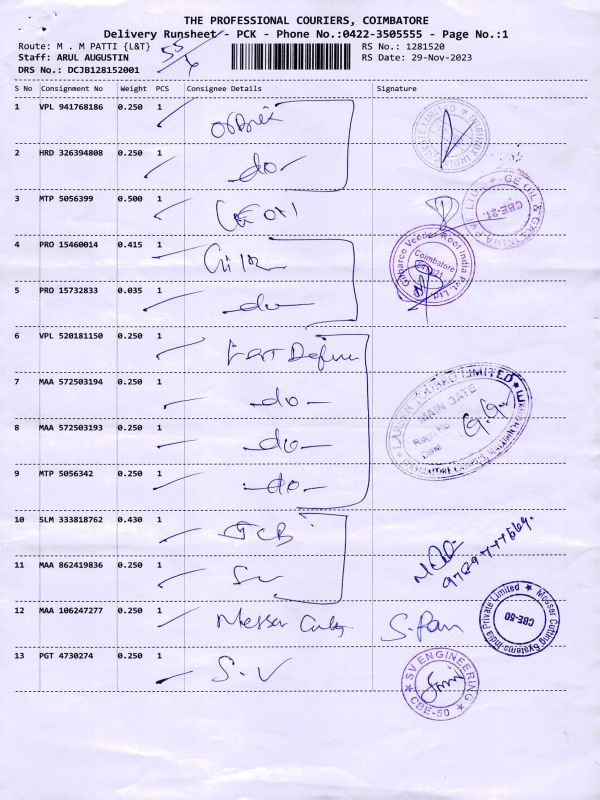 THE PROFESSIONAL COURIERS, COIMBATORE
Delivery Runsheet - PCK - Phone No.:0422-3505555 - Page No.:1
Route: M . M PATTI {L&T}
RS No.: 1281520
Staff: ARUL AUGUSTIN
RS Date: 29-Nov-2023
DRS No.: DCJB128152001
55/6
S No Consignment No Weight PCS Consignee Details Signature
1 VPL 941768186 0.250 1
2 HRD 326394808 0.250 1 -do-
3 MTP 5056399 0.500 1
GE OIL & GAS INDIA PVT. LTD. CBE-21
4 PRO 15460014 0.415 1
Gilbarco Veeder Root India Pvt. Ltd. Coimbatore
5 PRO 15732833 0.035 1 -do-
6 VPL 520181150 0.250 1 L&T Defence
7 MAA 572503194 0.250 1 -do-
LIMITED MAIN GATE
8 MAA 572503193 0.250 1 -do-
9 MTP 5056342 0.250 1 -do-
10 SLM 333818762 0.430 1 JCB
11 MAA 862419836 0.250 1
12 MAA 106247277 0.250 1 Messer Cutg
Messer Cutting Systems India Private Limited CBE-50
13 PGT 4730274 0.250 1 S.V
SV ENGINEERING CBE-50